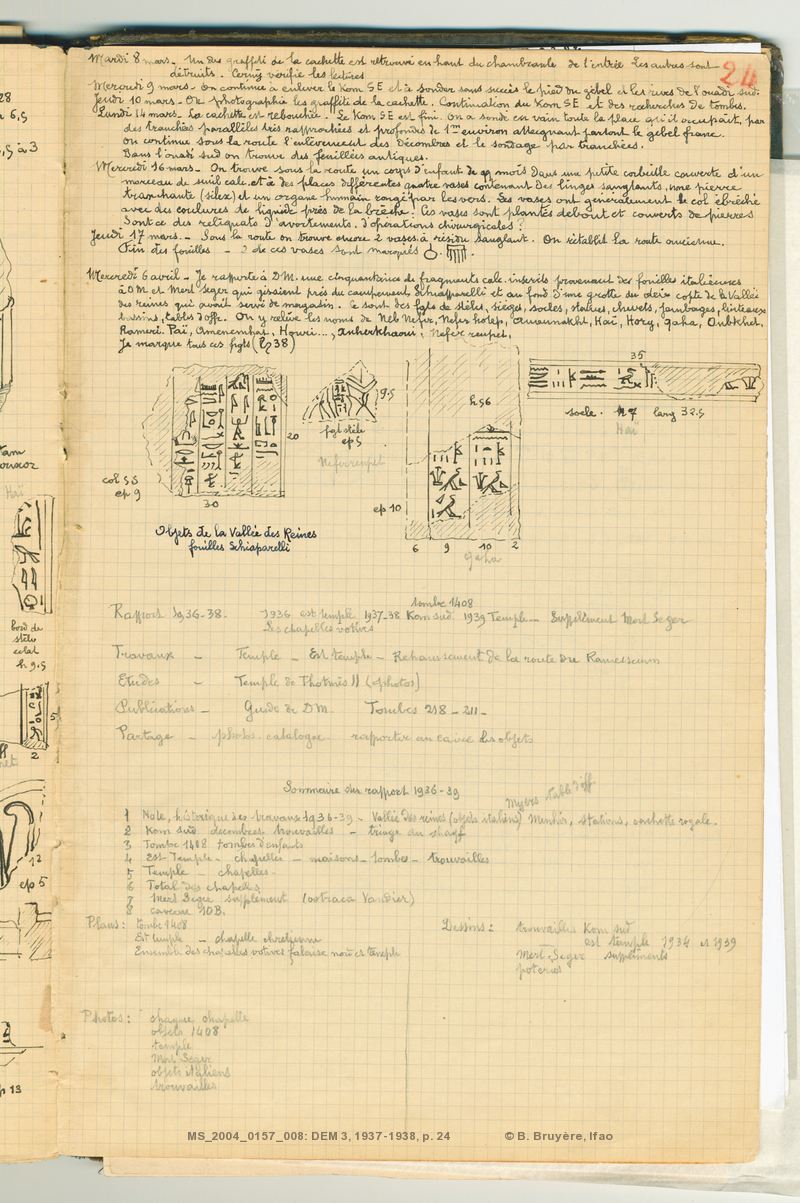 24
Mardi 8 mars. Un des graffiti de la cachette est retrouvé en haut du chambranle de l'entrée. Les autres sont
détruits. Cerny vérifie les lectures
Mercredi 9 mars. On continue à enlever le Kom SE et à sonder sans succès le pied du gebel et les rives de l'ouadi sud.
Jeudi 10 mars. On photographie les graffiti de la cachette. Continuation du Kom SE et des recherches de tombes.
Lundi 14 mars. La cachette est rebouchée. Le Kom SE est fini. On a sondé en vain toute la place qu'il occupait, par
des tranchées parallèles très rapprochées et profondes de 1m environ atteignant partout le gebel franc.
On continue sous la route l'enlèvement des décombres et le sondage par tranchées.
Dans l'ouadi sud on trouve des feuillées antiques.
Mercredi 16 mars. On trouve sous la route un corps d'enfant de qq mois dans une petite corbeille couverte d'un
morceau de seuil calc. et à des places différentes quatre vases contenant des linges sanglants, une pierre
tranchante (silex) et un organe humain rongé par les vers. Les vases ont généralement le col ébréché
avec des coulures de liquide près de la brèche. Ces vases sont plantés debout et couverts de pierres
Sont ce des reliquats d'avortements, d'opérations chirurgicales?
Jeudi 17 mars. Sous la route on trouve encore 2 vases à résidu sanglant. On rétablit la route ancienne.
Fin des fouilles. de ces vases sont marqués
Mercredi 6 avril. Je rapporte à DM. une cinquantaine de fragments calc. inscrits provenant des fouilles italiennes
à DM et Mert Seger qui gisaient près du campement Schiapparelli et au fond d'une grotte du côté de la Vallée
des reines qui avait servi de magasin. Ce sont des fgts de stèles, sièges, socles, statues, chevets, jambages, linteaux
bassins, tables d'off. On y relève les noms de Neb Nefer, Nefer hotep, Amennakht, Haï, Hory, Qaha, Onbekhet,
Rameri, Paï, Amenemhat, Houri..., Anherkhaoui, Nefer renpet,
Je marque tous ces fgts (38)
20
col SS
ep 9
30
9.5
fgt stèle
ep 5
Neferrenpet
h 56
ep 10
6 9 10 2
Qaha
35
socle. h 7 larg 32.5
Haï
Objets de la Vallée des Reines
fouilles Schiaparelli
tombe 1408
Rapport 1936-38. 1936 est temple 1937-38 Kom sud. 1939 Temple - Supplément Mert Seger
Les chapelles votives
Travaux - Temple - Est temple - Rehaussement de la route du Ramesseum
Etudes - Temple de Thotmès II (photos)
Publications - Guide de DM. Tombes 218-211-
Partage - photos. catalogue rapporter au Caire les objets
Sommaire du rapport 1936-39
Myers table d'off
1 Note, historique des travaux 1936-39 - Vallée des reines (objets italiens) Menhir, stations, cachette royale.
2 Kom sud décombres, trouvailles - triage du
3 Tombe 1408 tombes d'enfants
4 Est Temple - chapelles - maisons - tombes - trouvailles
5 Temple - chapelles -
6 Total des chapelles
7 Mert Seger supplément (ostraca Vandier)
8 caverne 10B.
Plans: tombe 1408
Est temple - chapelle chrétienne
Ensemble des chapelles votives falaise nord et temple
Dessins: trouvailles Kom sud
est temple 1934 et 1939
Mert Seger suppléments
poteries
Photos: chaque chapelle
objets 1408
temple
Mert Seger
objets italiens
trouvailles
28
6,5
,5 à 3
Haï
bord de
stèle
éclat
h 9.5
5
2
12
ep 5
p 13
MS_2004_0157_008: DEM 3, 1937-1938, p. 24 © B. Bruyère, Ifao